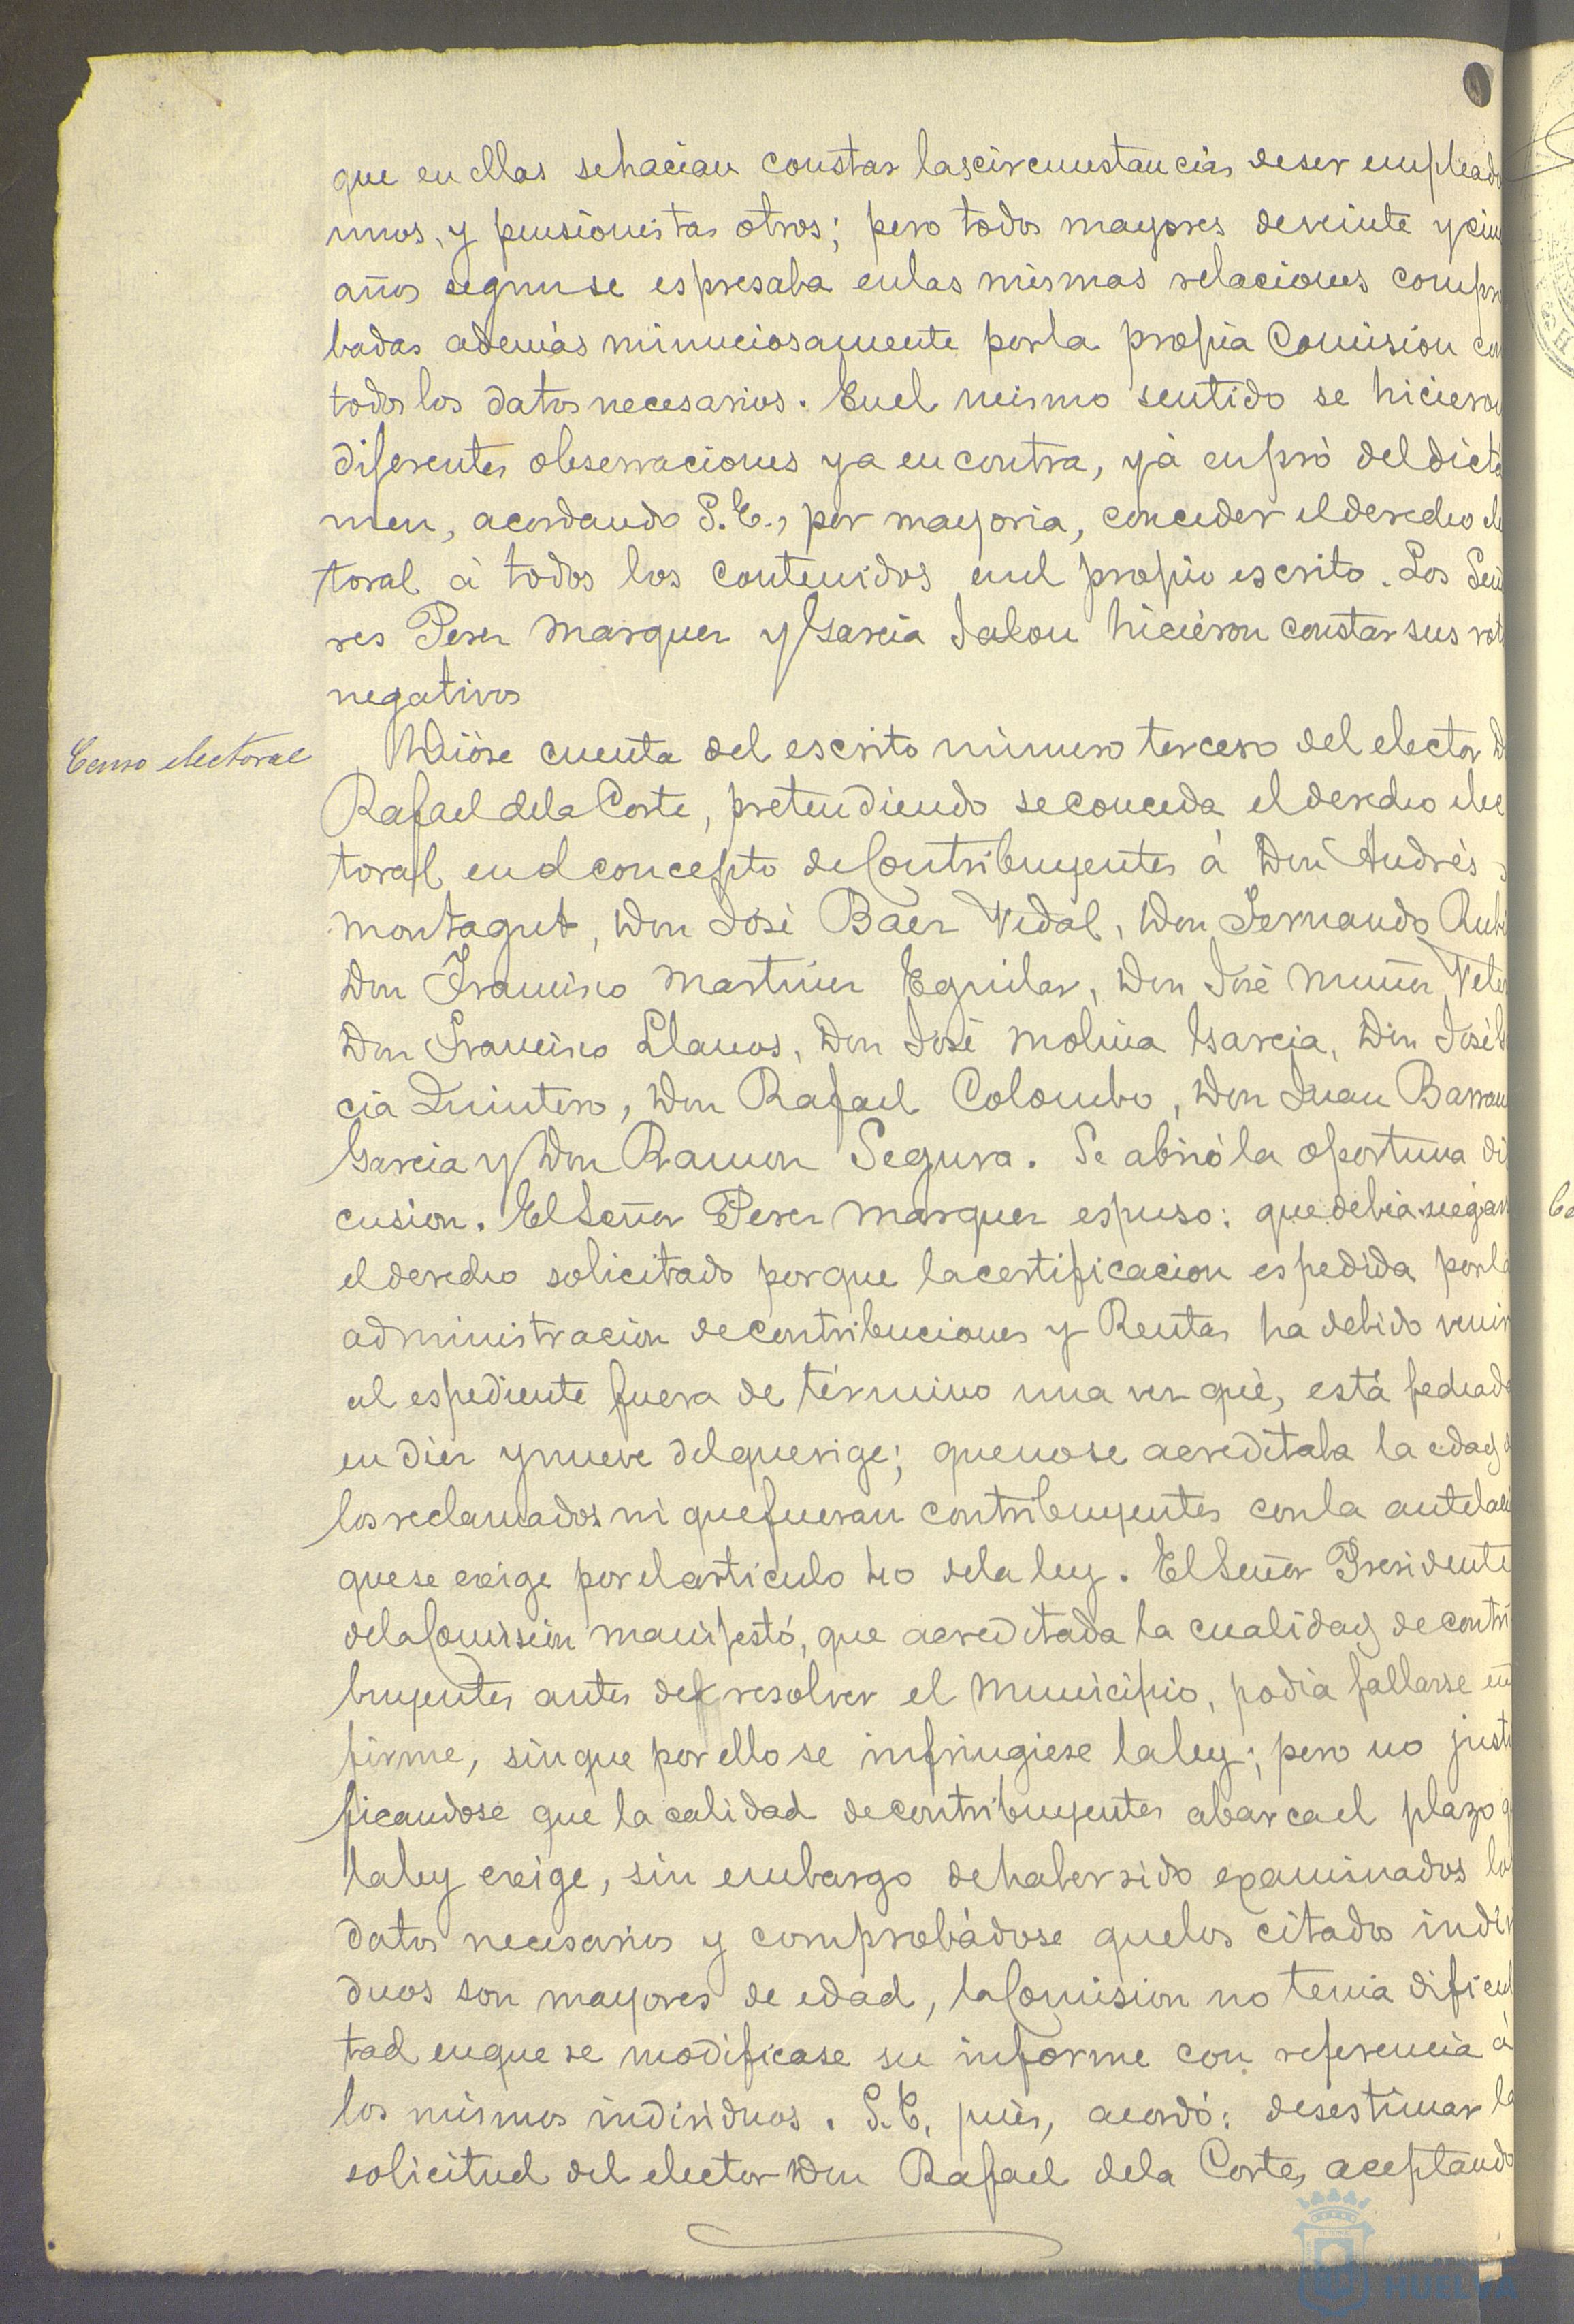 que en ellas se hacian constar las circunstancias de ser emplead
unos, y pensionistas otros; pero todos mayores de veinte y cin
años segun se espresaba en las mismas relaciones compro
badas además minuciosamente por la propia Comision con
todos los datos necesarios. En el mismo sentido se hicieron
diferentes observaciones ya en contra, yá en pró del dictá
men, acordando S.E., por mayoria, conceder el derecho elec
toral á todos los contenidos en el propio escrito. Los Seño
res Perez Marquez y Garcia Jalon hicieron constar sus vot
negativos
Censo electoral
Dióse cuenta del escrito número tercero del elector D
Rafael de la Corte, pretendiendo se conceda el derecho elec
toral en el concepto de Contribuyentes á Don Andrés
Montagut, Don José Baez Vidal, Don Fernando Rubi
Don Francisco Martinez Eguilaz, Don José Muñoz Vele
Don Francisco Llanos, Don José Molina Garcia, Don José
cia Quintero, Don Rafael Colombo, Don Juan Barran
Garcia y Don Ramon Segura. Se abrió la oportuna dis
cusion. El Señor Perez Marquez espuso: que debia negar
el derecho solicitado porque la certificacion espedida por la
administracion de contribuciones y Rentas ha debido venir
al espediente fuera de término una vez qué, está fechada
en diez y nueve del que rige; que no se acreditaba la edad d
los reclamados ni que fueran contribuyentes con la antelaci
que se exige por el articulo de la ley. El Señor Presidente
de la Comision manifestó, que acreditada la cualidad de contri
buyentes antes de resolver el Municipio, podia fallarse en
firme, sin que por ello se infringiese la ley; pero no justi
ficandose que la calidad de contribuyentes abarca el plazo q
la ley exige, sin embargo de haber sido examinados los
datos necesarios y comprobádose que los citados indivi
duos son mayores de edad, la Comision no tenia dificul
tad en que se modificase su informe con referencia á
los mismos individuos. S.E. pués, acordó: desestimar la
solicitud del elector Don Rafael de la Corte, aceptando
HUELVA